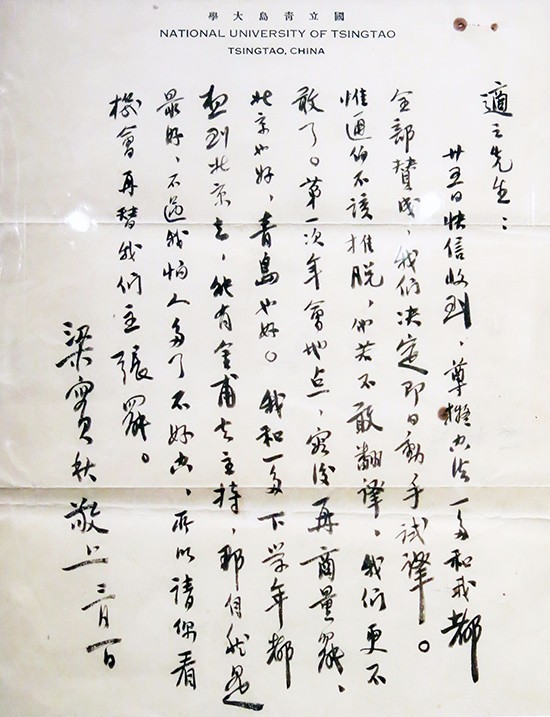 國立青島大學
NATIONAL UNIVERSITY OF TSINGTAO
TSINGTAO, CHINA
適之先生：
廿五日快信收到、尊擬办法一多和我都
全部贊成，我们决定即日動手試譯。
惟通伯不該推脱，他若不敢翻譯，我们更不
敢了。第一次年會地点，容後再商量罷、
北京也好，青島也好。我和一多下学年都
想到北京去，能有金甫去主持，那自然是
最好，不過我怕人多了不好办，所以請你看
機會再替我们主張罷。
梁實秋敬上 三月一日